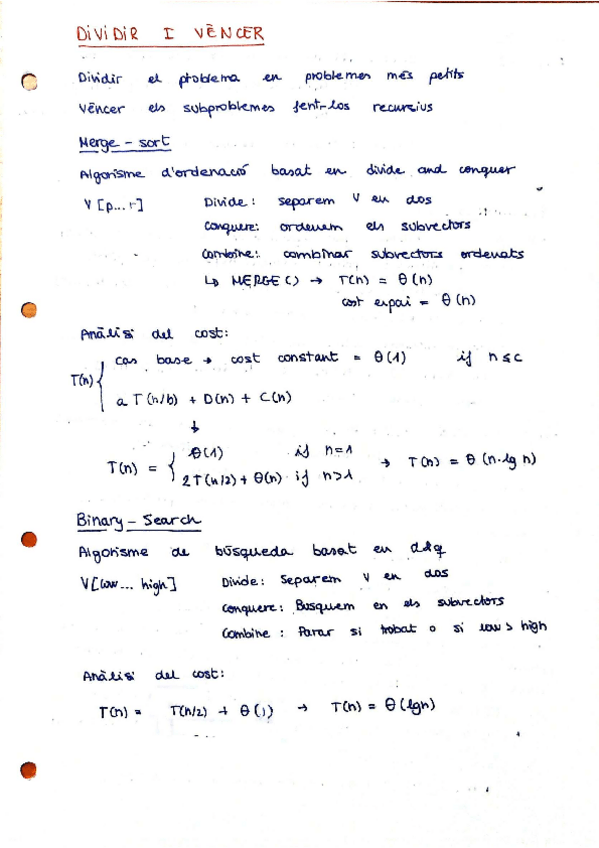 DIVIDIR I VÈNCER
Dividir el problema en problemes més petits
Vèncer els subproblemes fent-los recursius
Merge - sort
Algorisme d'ordenació basat en divide and conquer
V [p... r] Divide: separem V en dos
Conquere: ordenem els subvectors
Combine: combinar subvectors ordenats
↳ MERGE() → T(n) = Θ(n)
cost espai = Θ(n)
Anàlisi del cost:
T(n) { cas base → cost constant = Θ(1) if n ≤ c
a T(n/b) + D(n) + C(n)
↓
T(n) = { Θ(1) if n=1 → T(n) = Θ(n·lg n)
2T(n/2) + Θ(n) if n>1
Binary - Search
Algorisme de búsqueda basat en d&q
V[low... high] Divide: Separem V en dos
Conquere: Busquem en els subvectors
Combine: Parar si trobat o si low > high
Anàlisi del cost:
T(n) = T(n/2) + Θ(1) → T(n) = Θ(lgn)